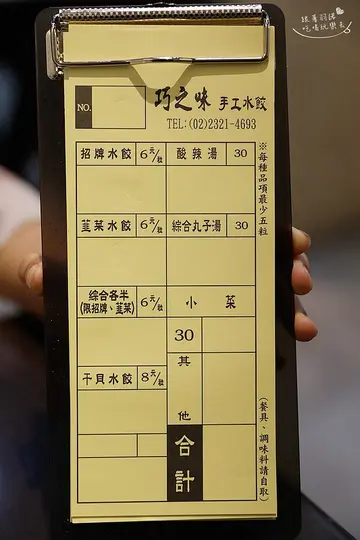 跟著羽諾
吃喝玩樂去
NO.
巧之味 手工水餃
TEL:(02)2321-4693
招牌水餃 6元/粒 酸辣湯 30
韮菜水餃 6元/粒 綜合丸子湯 30
綜合各半
(限招牌、韮菜) 6元/粒 小菜
30
干貝水餃 8元/粒 其他
合計
※每種品項最少五粒
(餐具、調味料請自取)